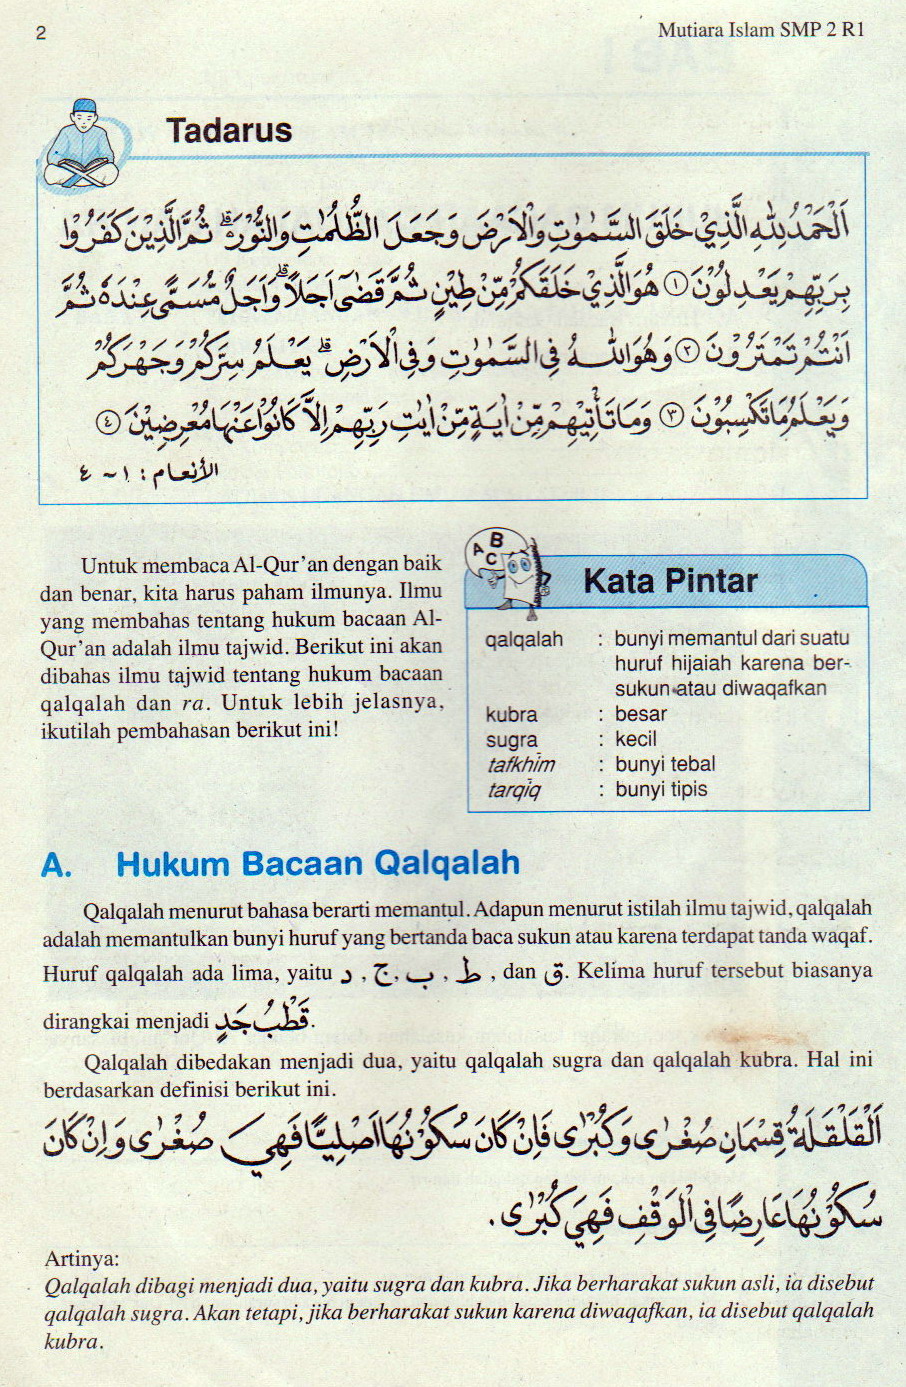 2
Mutiara Islam SMP 2 R1
Tadarus
اَلْحَمْدُ لِلّٰهِ الَّذِيْ خَلَقَ السَّمٰوٰتِ وَالْاَرْضَ وَجَعَلَ الظُّلُمٰتِ وَالنُّوْرَ ۗ ثُمَّ الَّذِيْنَ كَفَرُوْا
بِرَبِّهِمْ يَعْدِلُوْنَ ١ هُوَ الَّذِيْ خَلَقَكُمْ مِّنْ طِيْنٍ ثُمَّ قَضٰىٓ اَجَلًا ۗ وَاَجَلٌ مُّسَمًّى عِنْدَهٗ ثُمَّ
اَنْتُمْ تَمْتَرُوْنَ ٢ وَهُوَ اللّٰهُ فِى السَّمٰوٰتِ وَفِى الْاَرْضِ ۗ يَعْلَمُ سِرَّكُمْ وَجَهْرَكُمْ
وَيَعْلَمُ مَا تَكْسِبُوْنَ ٣ وَمَا تَأْتِيْهِمْ مِّنْ اٰيَةٍ مِّنْ اٰيٰتِ رَبِّهِمْ اِلَّا كَانُوْا عَنْهَا مُعْرِضِيْنَ ٤
الأنعام : ١ ~ ٤
Untuk membaca Al-Qur'an dengan baik
dan benar, kita harus paham ilmunya. Ilmu
yang membahas tentang hukum bacaan Al-
Qur'an adalah ilmu tajwid. Berikut ini akan
dibahas ilmu tajwid tentang hukum bacaan
qalqalah dan ra. Untuk lebih jelasnya,
ikutilah pembahasan berikut ini!
A B C
Kata Pintar
qalqalah : bunyi memantul dari suatu
huruf hijaiah karena ber-
sukun atau diwaqafkan
kubra : besar
sugra : kecil
tafkhim : bunyi tebal
tarqiq : bunyi tipis
A. Hukum Bacaan Qalqalah
Qalqalah menurut bahasa berarti memantul. Adapun menurut istilah ilmu tajwid, qalqalah
adalah memantulkan bunyi huruf yang bertanda baca sukun atau karena terdapat tanda waqaf.
Huruf qalqalah ada lima, yaitu د , ج , ب , ط , dan ق. Kelima huruf tersebut biasanya
dirangkai menjadi قَطْبُ جَدٍ.
Qalqalah dibedakan menjadi dua, yaitu qalqalah sugra dan qalqalah kubra. Hal ini
berdasarkan definisi berikut ini.
اَلْقَلْقَلَةُ قِسْمَانِ صُغْرٰى وَكُبْرٰى فَاِنْ كَانَ سُكُوْنُهَا اَصْلِيًّا فَهِيَ صُغْرٰى وَاِنْ كَانَ
سُكُوْنُهَا عَارِضًا فِى الْوَقْفِ فَهِيَ كُبْرٰى .
Artinya:
Qalqalah dibagi menjadi dua, yaitu sugra dan kubra. Jika berharakat sukun asli, ia disebut
qalqalah sugra. Akan tetapi, jika berharakat sukun karena diwaqafkan, ia disebut qalqalah
kubra.